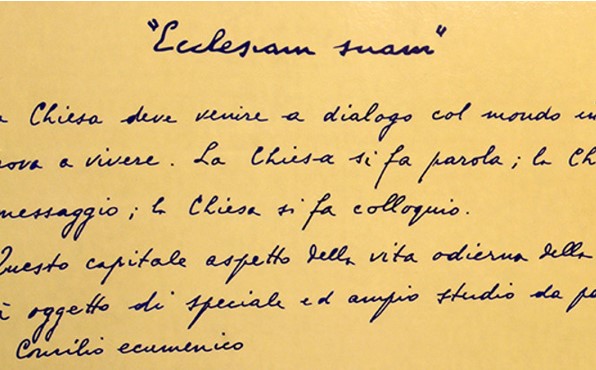 "Ecclesiam suam"
Chiesa deve venire a dialogo col mondo in
a vivere. La Chiesa si fa parola; la Ch
messaggio; la Chiesa si fa colloquio.
Questo capitale aspetto della vita odierna della
oggetto di speciale ed ampio studio da pa
Consilio ecumenico